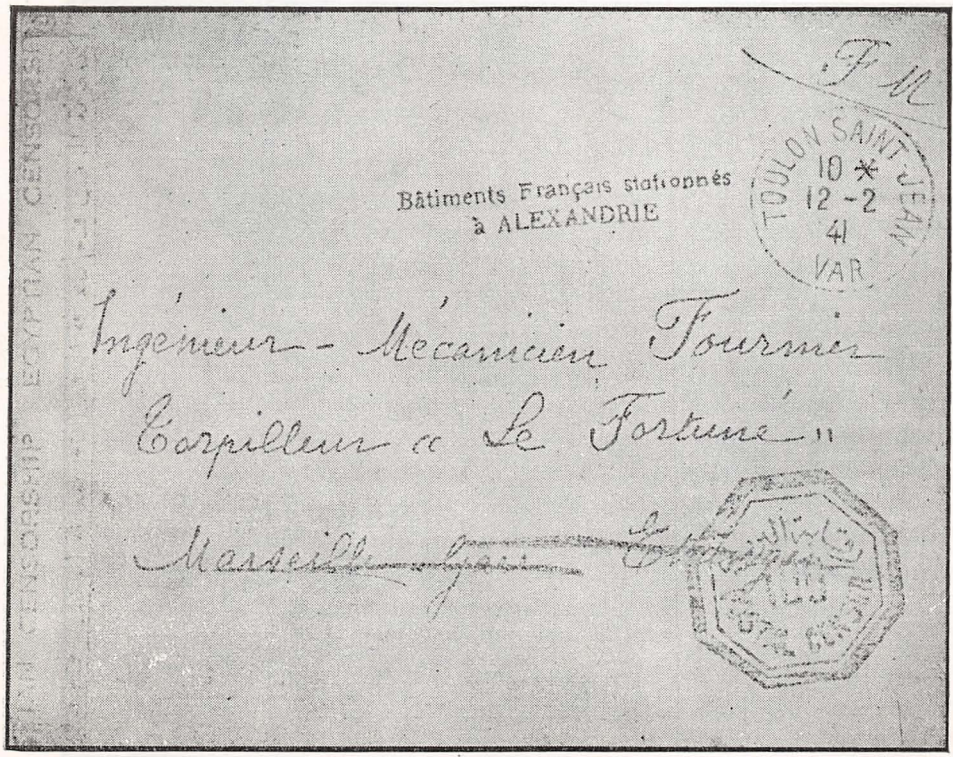 F M
TOULON SAINT-JEAN
10 *
12 - 2
41
VAR
Bâtiments Français stationnés
à ALEXANDRIE
Ingénieur - Mécanicien Fournier
Torpilleur " Le Fortuné "
Marseille gare
EGYPTIAN CENSORSHIP
CENSORSHIP